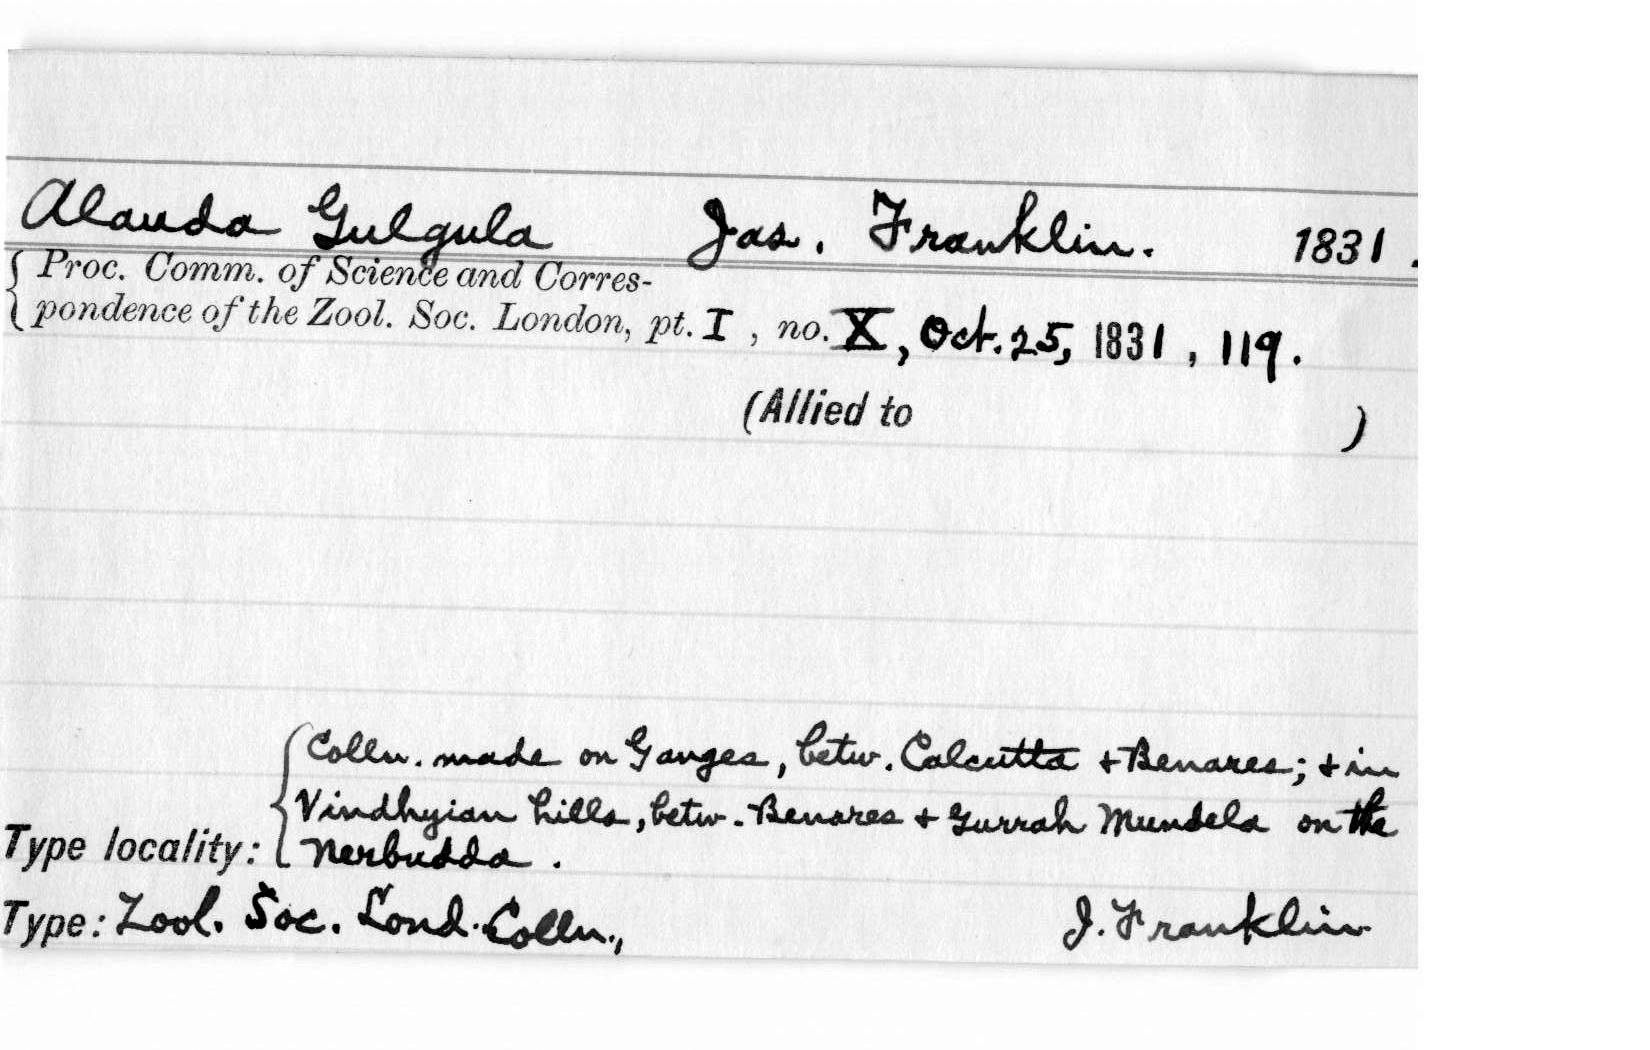 Alauda Gulgula Jas. Franklin. 1831.
Proc. Comm. of Science and Corres-
pondence of the Zool. Soc. London, pt. I, no. X, Oct. 25, 1831, 119.
(Allied to )
Colln. made on Ganges, betw. Calcutta + Benares; + in
Vindhyian hills, betw. Benares + Gurrah Mundela on the
Type locality: Nerbudda.
Type: Zool. Soc. Lond. Colln., J. Franklin